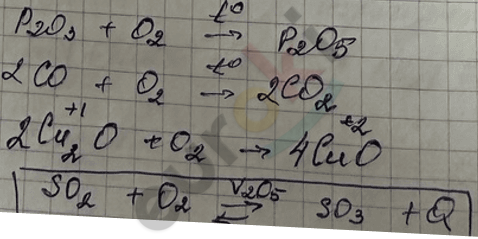 P₂O₃ + O₂ →^{t°} P₂O₅
2CO + O₂ →^{t°} 2CO₂
2Cu₂^{+1}O + O₂ → 4Cu^{+2}O
SO₂ + O₂ ⇄^{V₂O₅} SO₃ + Q